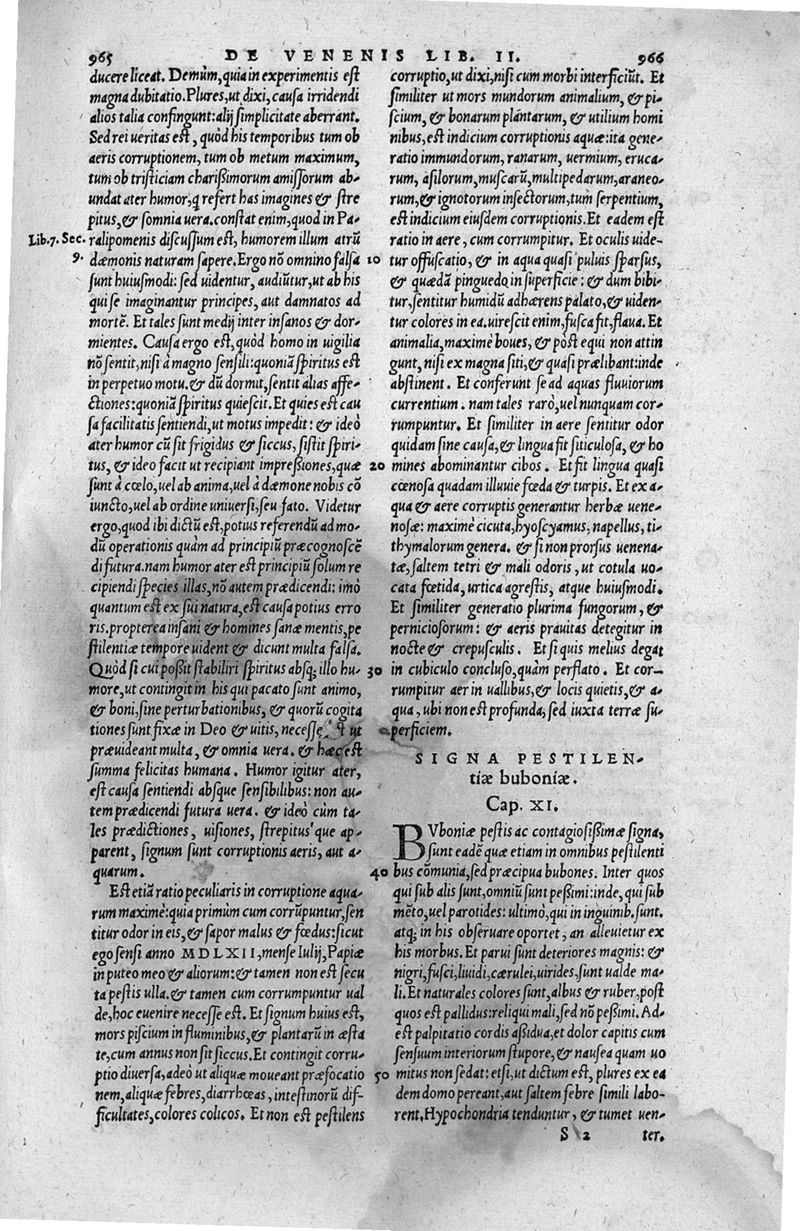 965 DE VENENIS LIB. II. 966
ducere liceat. Demùm, quia in experimentis est
magna dubitatio. Plures, ut dixi, causa irridendi
alios talia confingunt: alij simplicitate aberrant.
Sed rei ueritas est, quòd his temporibus tum ob
aeris corruptionem, tum ob metum maximum,
tum ob tristiciam charißimorum amißorum ab-
undat ater humor, q refert has imagines & stre
pitus, & somnia uera. constat enim, quod in Pa-
Lib. 7. Sec. 9.
ralipomenis discussum est, humorem illum atrũ
dæmonis naturam sapere. Ergo nõ omnino falsa
sunt huiusmodi: sed uidentur, audiũtur, ut ab his
qui se imaginantur principes, aut damnatos ad
mortẽ. Et tales sunt medij inter insanos & dor-
mientes. Causa ergo est, quòd homo in uigilia
nõ sentit, nisi à magno sensili: quoniã spiritus est
in perpetuo motu. & dũ dormit, sentit alias affe-
ctiones: quoniã spiritus quiescit. Et quies est cau
sa facilitatis sentiendi, ut motus impedit: & ideò
ater humor cũ sit frigidus & siccus, sistit spiri-
tus, & ideo facit ut recipiant impreßiones, quæ
sunt à cœlo, uel ab anima, uel à dæmone nobis cõ
iuncto, uel ab ordine uniuersi, seu fato. Videtur
ergo, quod ibi dictũ est, potius referendũ ad mo-
dũ operationis quàm ad principiũ præcognoscẽ
di futura. nam humor ater est principiũ solum re
cipiendi species illas, nõ autem prædicendi: imò
quantum est ex sui natura, est causa potius erro
ris. propterea insani & homines sanæ mentis, pe
stilentiæ tempore uident & dicunt multa falsa.
Quòd si cui poßit stabiliri spiritus absq; illo hu-
more, ut contingit in his qui pacato sunt animo,
& boni, sine perturbationibus, & quorũ cogita
tiones sunt fixæ in Deo & uitis, necesse, ut
præuideant multa, & omnia uera. & hæc est
summa felicitas humana. Humor igitur ater,
est causa sentiendi absque sensibilibus: non au-
tem prædicendi futura uera. & ideò cùm ta-
les prædictiones, uisiones, strepitus'que ap-
parent, signum sunt corruptionis aeris, aut a-
quarum.
Est etiã ratio peculiaris in corruptione aqua-
rum maximè: quia primùm cum corrũpuntur, sen
titur odor in eis, & sapor malus & fœdus: sicut
ego sensi anno MDLXII, mense Iulij, Papiæ
in puteo meo & aliorum: & tamen non est secu
ta pestis ulla. & tamen cum corrumpuntur ual
de, hoc euenire necesse est. Et signum huius est,
mors piscium in fluminibus, & plantarũ in æsta
te, cum annus non sit siccus. Et contingit corru-
ptio diuersa, adeò ut aliquæ moueant præfocatio
nem, aliquæ febres, diarrhœas, intestinorũ dif-
ficultates, colores colicos. Et non est pestilens
10
20
30
40
50
corruptio, ut dixi, nisi cum morbi interficiũt. Et
similiter ut mors mundorum animalium, & pi-
scium, & bonarum plantarum, & utilium homi
nibus, est indicium corruptionis aquæ: ita gene-
ratio immundorum, ranarum, uermium, eruca-
rum, asilorum, muscarũ, multipedarum, araneo-
rum, & ignotorum insectorum, tum serpentium,
est indicium eiusdem corruptionis. Et eadem est
ratio in aere, cum corrumpitur. Et oculis uide-
tur offuscatio, & in aqua quasi puluis sparsus,
& quædã pinguedo in superficie: & dum bibi-
tur, sentitur humidũ adhærens palato, & uiden-
tur colores in ea. uirescit enim, fusca fit, flaua. Et
animalia, maximè boues, & pòst equi non attin
gunt, nisi ex magna siti, & quasi prælibant: inde
abstinent. Et conferunt se ad aquas fluuiorum
currentium. nam tales rarò, uel nunquam cor-
rumpuntur. Et similiter in aere sentitur odor
quidam sine causa, & lingua fit siticulosa, & ho
mines abominantur cibos. Et fit lingua quasi
cœnosa quadam illuuie fœda & turpis. Et ex a-
qua & aere corruptis generantur herbæ uene-
nosæ: maximè cicuta, hyoscyamus, napellus, ti-
thymalorum genera. & si non prorsus uenena-
tæ, saltem tetri & mali odoris, ut cotula uo-
cata fœtida, urtica agrestis, atque huiusmodi.
Et similiter generatio plurima fungorum, &
perniciosorum: & aeris prauitas detegitur in
nocte & crepusculis. Et si quis melius degat
in cubiculo concluso, quàm perflato. Et cor-
rumpitur aer in uallibus, & locis quietis, & a-
qua, ubi non est profunda, sed iuxta terræ su-
perficiem.
SIGNA PESTILEN-
tiæ buboniæ.
Cap. XI.
BVboniæ pestis ac contagiosißimæ signa,
sunt eadẽ quæ etiam in omnibus pestilenti
bus cõmunia, sed præcipua bubones. Inter quos
qui sub alis sunt, omniũ sunt peßimi: inde, qui sub
mẽto, uel parotides: ultimò, qui in inguinib. sunt.
atq; in his obseruare oportet, an alleuietur ex
his morbus. Et parui sunt deteriores magnis: &
nigri, fusci, liuidi, cærulei, uirides, sunt ualde ma-
li. Et naturales colores sunt, albus & ruber, post
quos est pallidus: reliqui mali, sed nõ peßimi. Ad-
est palpitatio cordis aßidua, et dolor capitis cum
sensuum interiorum stupore, & nausea quam uo
mitus non sedat: etsi, ut dictum est, plures ex ea
dem domo pereant, aut saltem febre simili labo-
rent, Hypochondria tenduntur, & tumet uen-
S 2 ter.